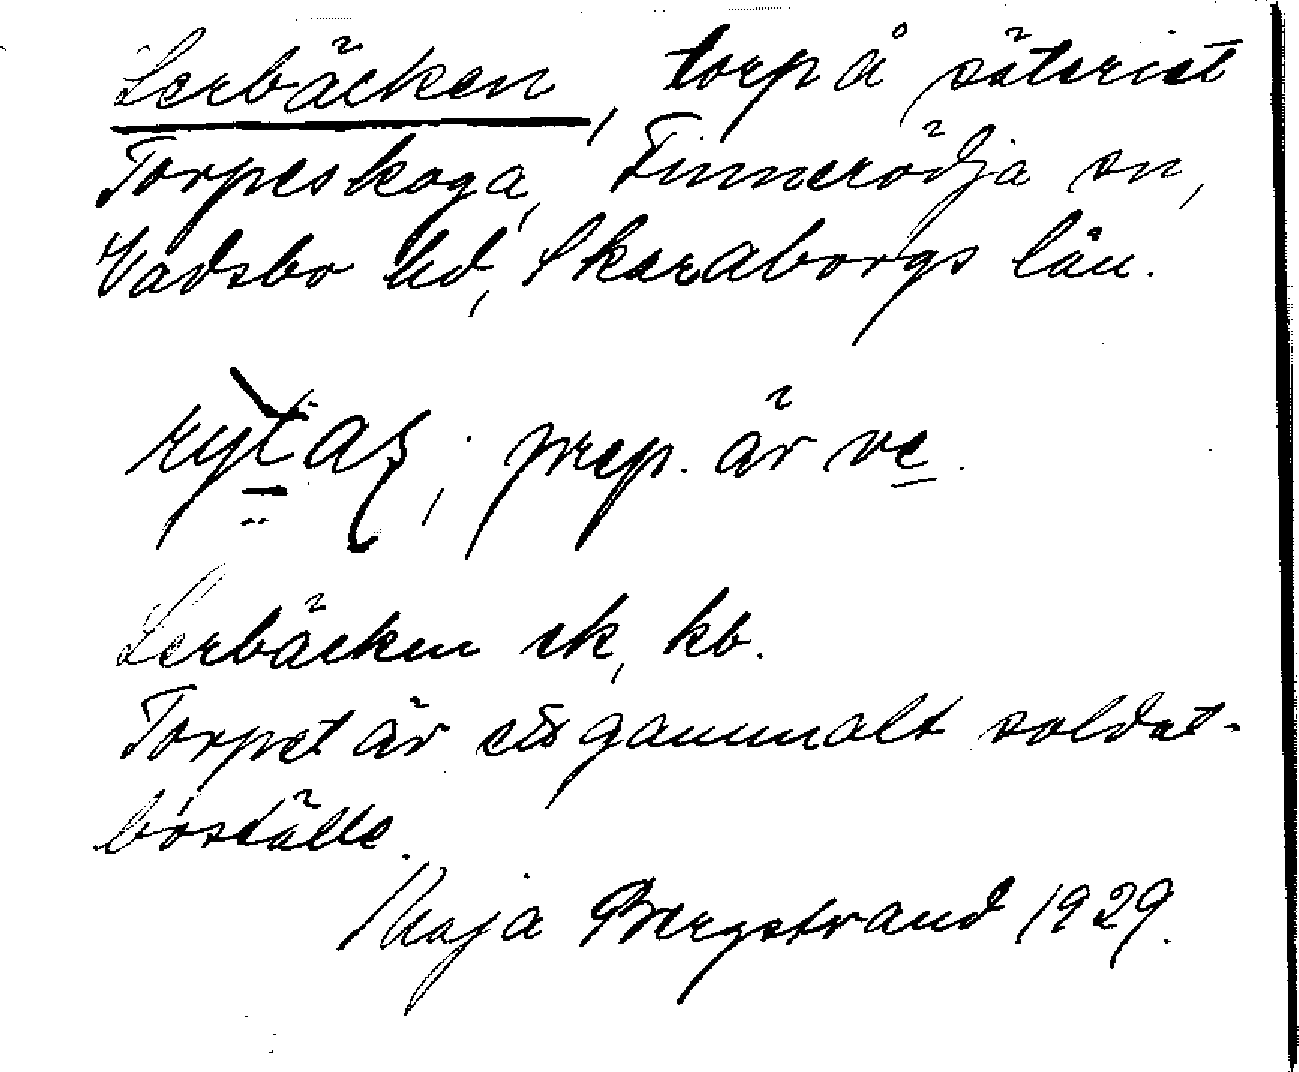 Lerbäcken, torp å säteriet
Torpeskoga, Finnerödja sn,
Vadsbo hd, Skaraborgs län.
prep. är ve.
Lerbäcken ek, kb.
Torpet är ett gammalt soldat-
boställe.
Maja Bergstrand 1929.